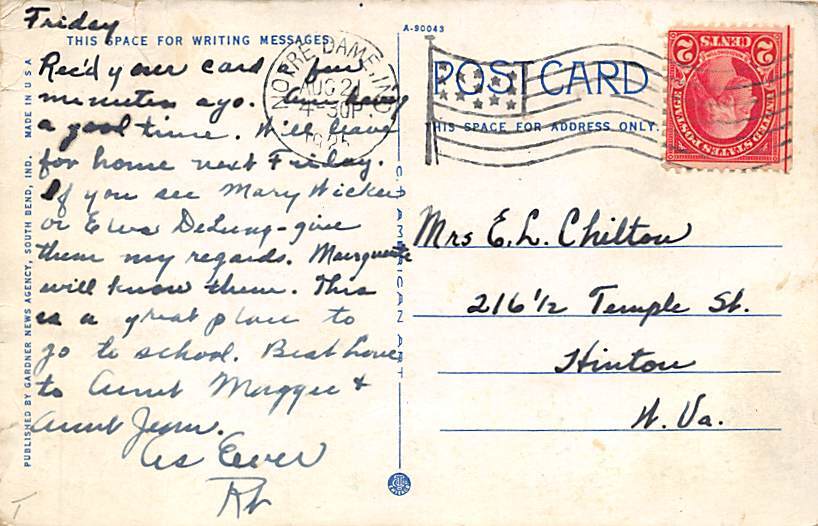 Friday
THIS SPACE FOR WRITING MESSAGES
Rec'd your card a few
minutes ago. Am having
a good time. Will leave
for home next Friday.
If you see Mary Wicker
or Elva DeLung - give
them my regards. Marguerite
will know them. This
is a great place to
go to school. Best Love
to Aunt Maggie &
Aunt Jenn.
As Ever
PUBLISHED BY GARDNER NEWS AGENCY, SOUTH BEND, IND. MADE IN U S A
C.T. AMERICAN ART
NOTRE DAME, IND.
AUG 21
4-30P
1925
A-90043
POST CARD
THIS SPACE FOR ADDRESS ONLY.
UNITED STATES POSTAGE
2 CENTS 2
Mrs E. L. Chilton
216 1/2 Temple St.
Hinton
W. Va.